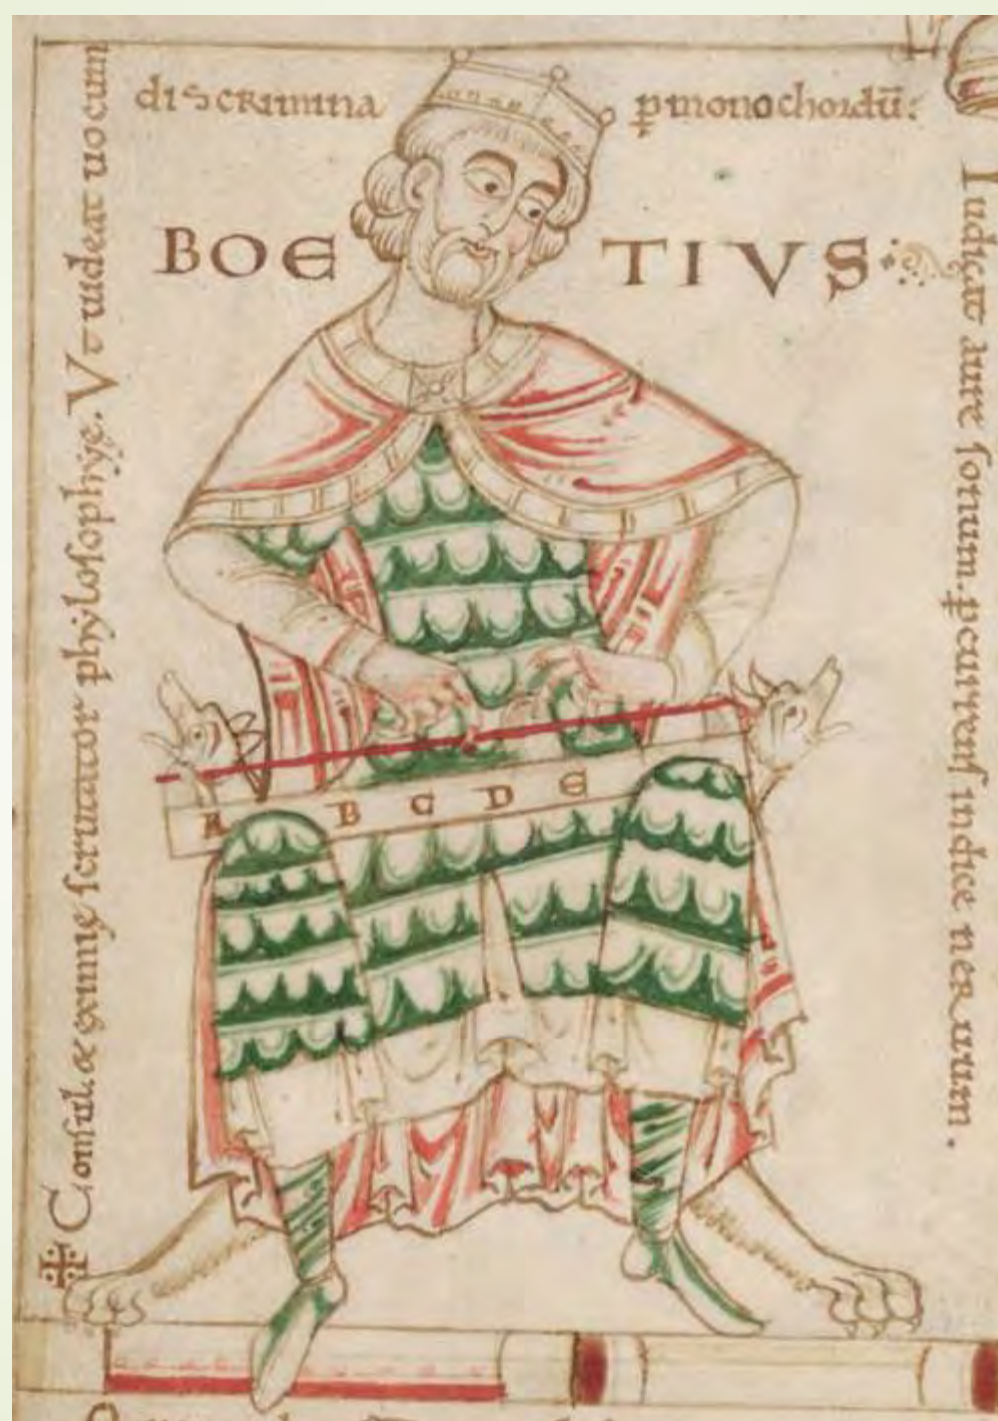 ✠ Conſul & eximię ſcrutator phẏloſophẏę. Vt uideat uocum
diſcrimina ꝑ monochordū:
BOETIVS
Iudicat aure ſonum. ꝑcurrenſ indice neruum.
A B C D E